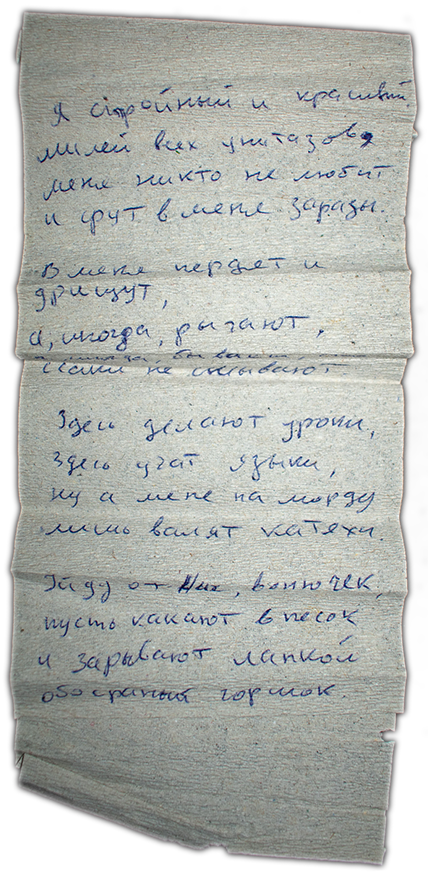 Я стройный и красивый
милей всех унитазов,
меня никто не любит
и срут в меня заразы.
В меня пердят и
дрищут,
а, иногда, рыгают,
а иногда, бывает,
какаки не смывают
Здесь делают уроки,
здесь учат языки,
ну а мене на морду
лишь валят катяхи.
Уйду от них, вонючек,
пусть какают в песок
и зарывают лапкой
обосраный горшок.